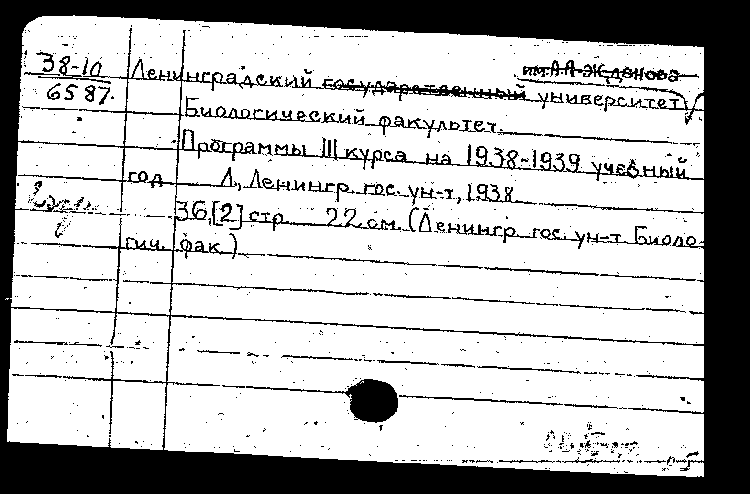 им. А.А. Жданова
38-10
Ленинградский государственный университет
6587.
Биологический факультет.
Программы III курса на 1938-1939 учебный
год Л., Ленингр. гос. ун-т, 1938
2 экз.
36,[2] стр. 22 см. (Ленингр. гос. ун-т. Биоло-
гич. фак.)